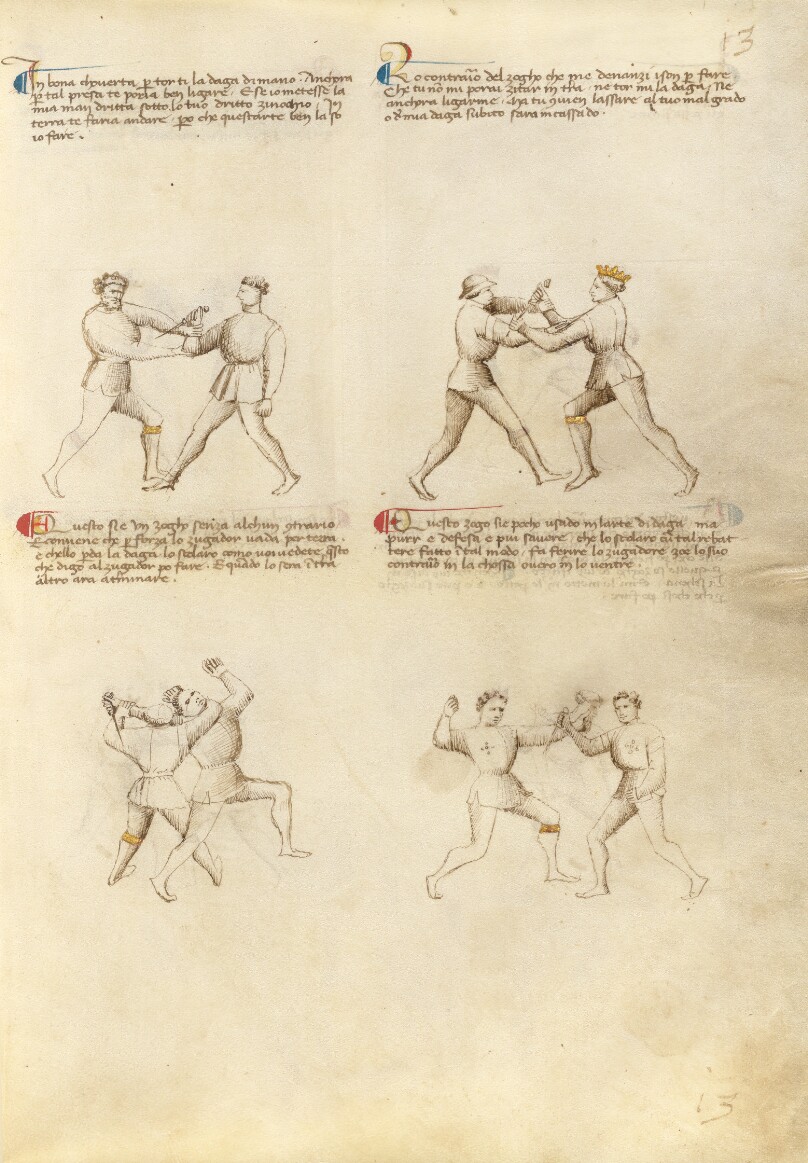 13
In bona choverta p tor ti la daga di mano. Anchora
p tal presa te poria ben ligare. E se io metesse la
mia man dritta sotto lo tuo dritto zinochio, In
terra te faria andare. po che questarte ben la so
io fare.
Lo contrario del zogho che me denanzi ison p fare.
Che tu no mi porai zitar in tra. ne tor mi la daga, Ne
anchora ligarme. Ma tu 9vien lassare al tuo mal grado
o d mia daga subito sarai incassado.
Questo si e un zogho senza alchun 9trario
E conviene che p forza lo zugador vada per terra.
e chello pda la daga. lo scolaro como voi vedete q̃sto
che digo al zugador po fare. E quado lo sera i tra
altro ara a tminare.
Questo zogo sie pocho usado in larte di daga. ma
purr e defesa e piui savere. che lo scolaro cu tal rebat
tere fatto i tal modo. fa ferire lo zugadore zoe lo suo
contraio in la chossa overo in lo ventre.
13